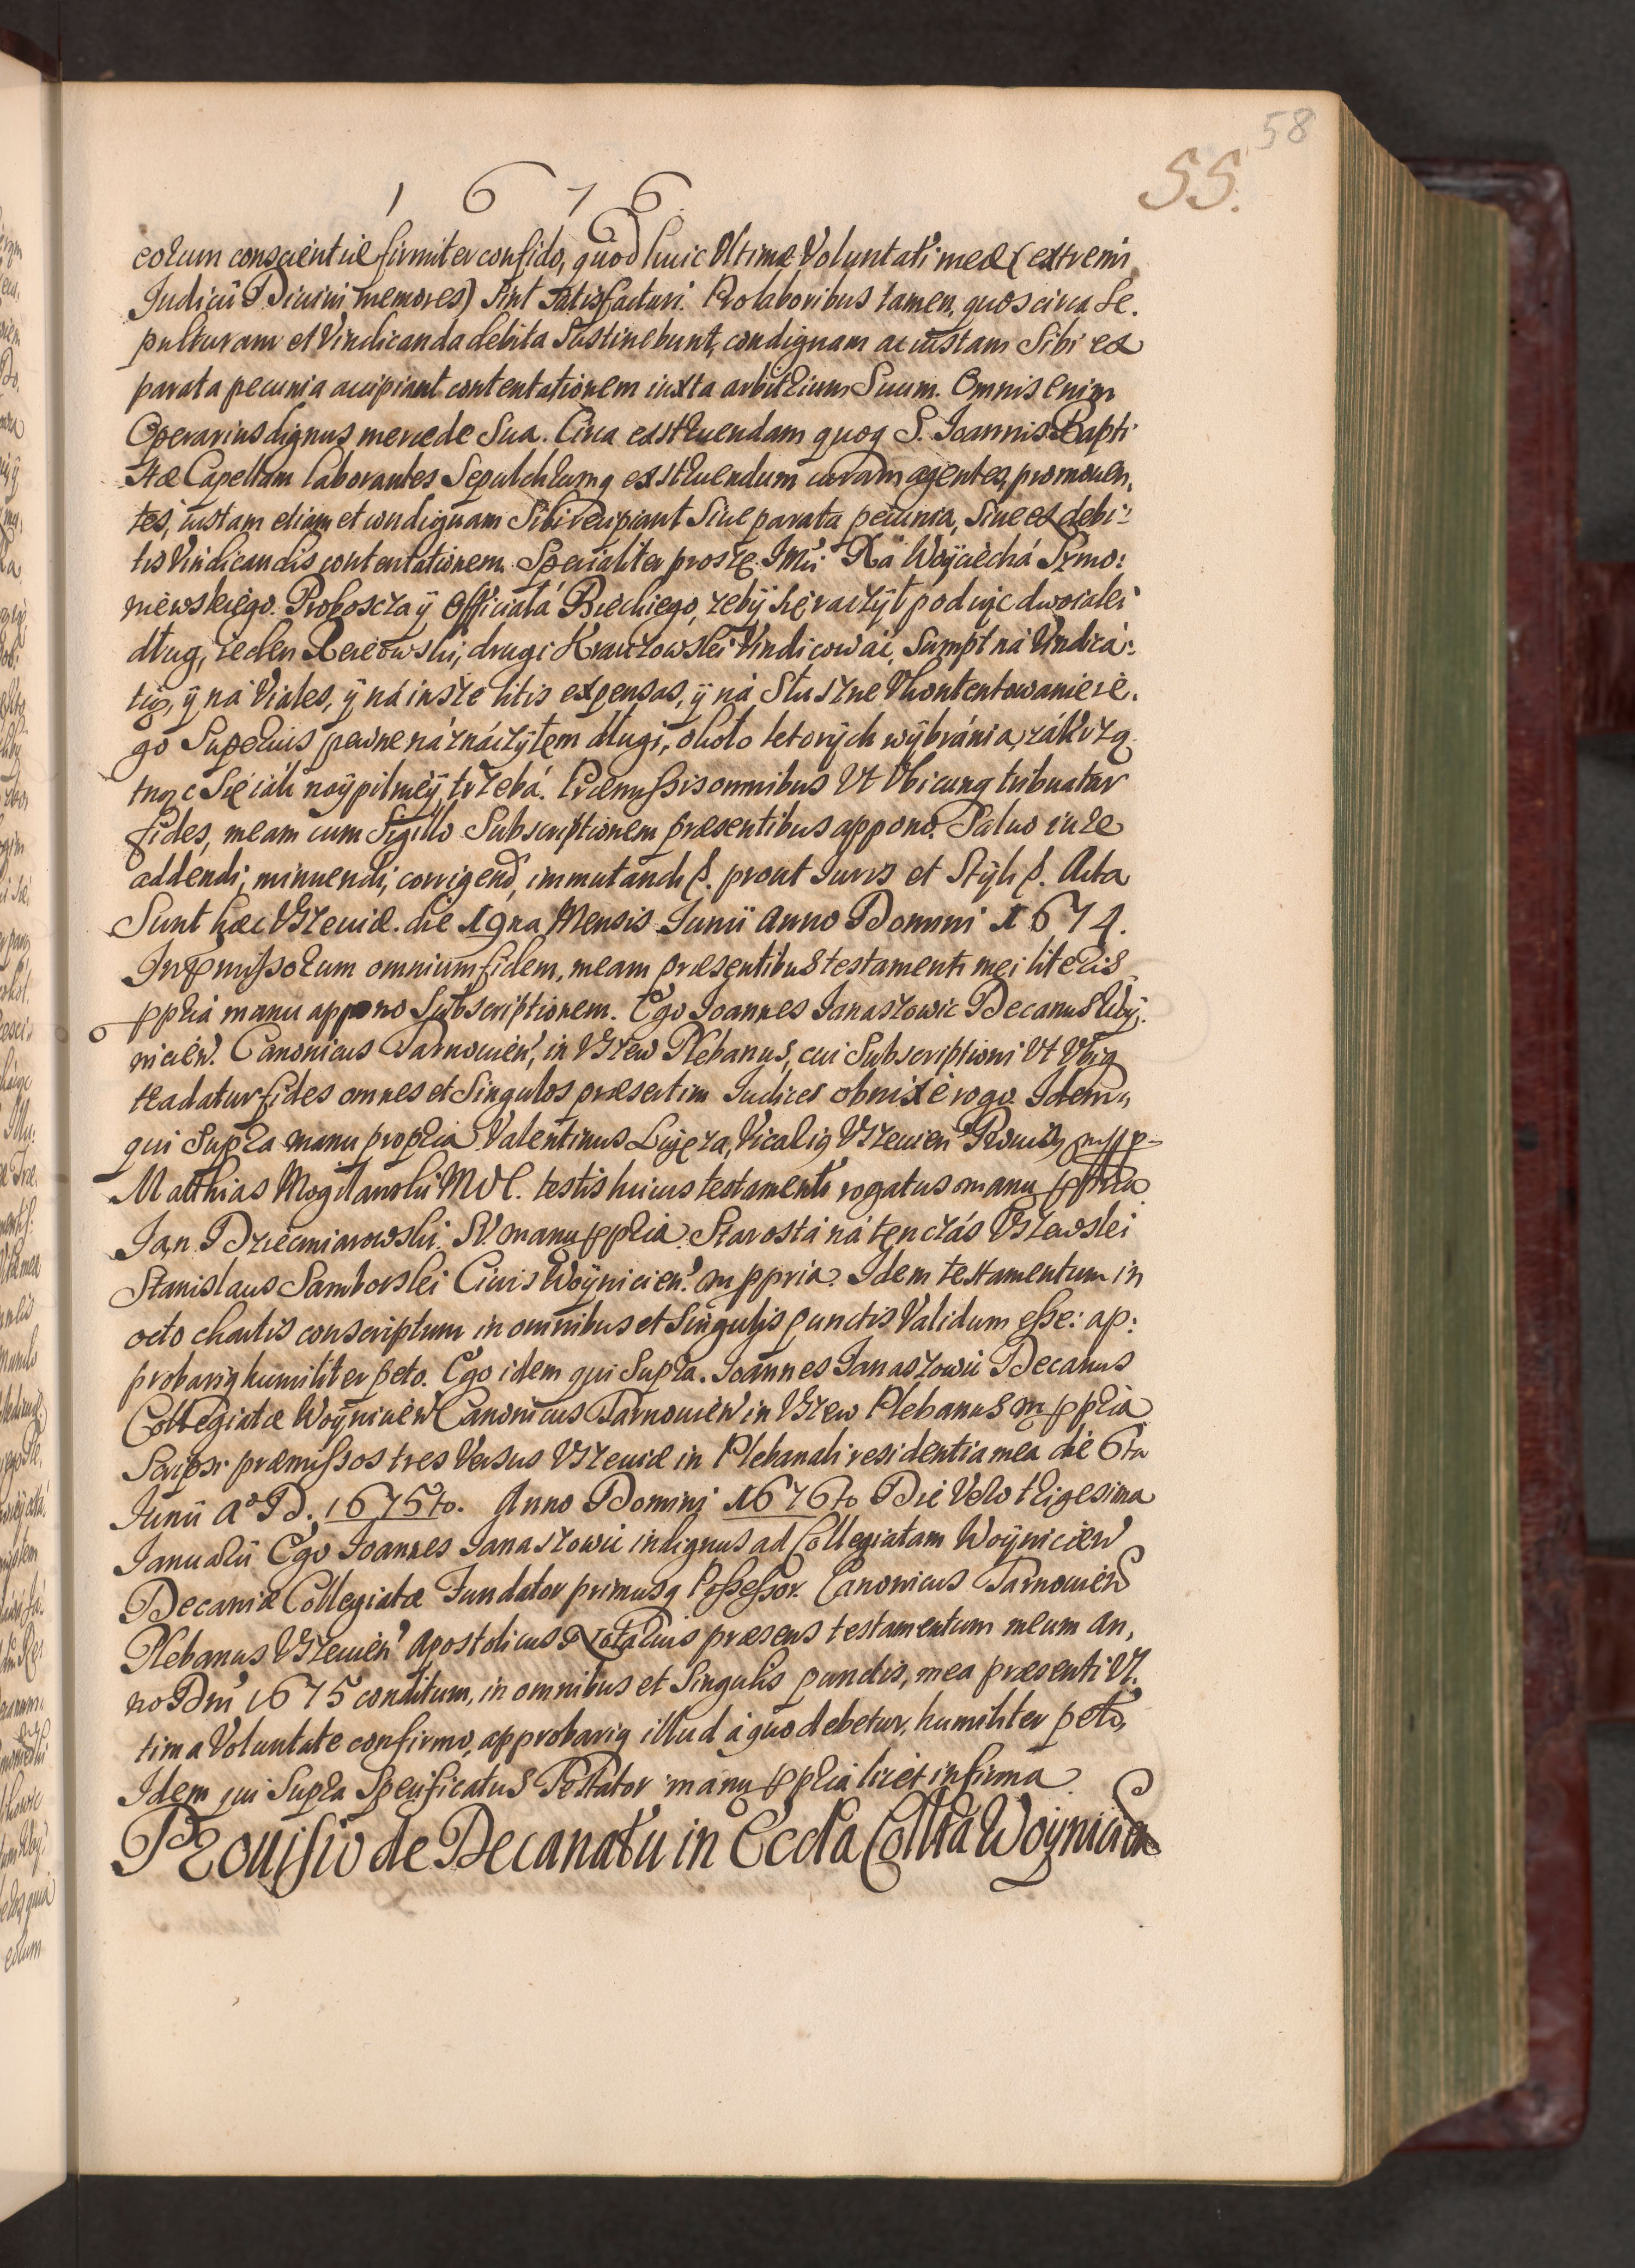 58
55.
1 6 7 6
eorum conscientiæ firmiter confido, quod huic Ultimæ Voluntati meæ (extremi
Iudicii Diuini memores) sint satisfacturi. Pro laboribus tamen, quos circa Se.
pulturam et Vindicanda debita Sustinebunt, condignam ac iustam Sibi ex
parata pecunia accipiant contentationem iuxta arbitrium Suum. Omnis enim
Operarius dignus mercede Sua. Circa exstruendam quoq S. Ioannis Bapti
stæ Capellam laborantes Sepulchrumq exstruendum curam agentes, promouen,
tes, iustam etiam et condignam Sibi recipiant Siue parata pecunia, Siue ex debi:
tis Vindicandis contentationem. Specialiter proszę Imći Xa Woÿciecha Szmo:
niewskiego. Proboscza ÿ Officiała Bieckiego, zebÿ się raczÿł podiąc dwoiaki
dług, ieden Raiowski, drugi Krauzowski Vindicować, Sumpt na Vindica:
tią, ÿ na Viales, ÿ na insze litis expensas, ÿ na Słuszne Vkontentowanie ie.
go Superius pewne náznáczÿłem długi, około ktorÿch wÿbránia, zákrzą
tnąc Się iák naÿpilnieÿ trzebá. Præmissis omnibus Vt Vbicunq tribuatur
fides, meam cum Sigillo Subscriptionem præsentibus appono. Saluo iure
addendi, minuendi, corrigend, immutandi &. prout Iuris et Stÿli &. Acta
Sunt hæc Vszewiæ. die 19na Mensis Iunii Anno Domini 1674.
In præmissorum omnium fidem, meam præsentibus testamenti mei literis
ppria manu appono Subscriptionem. Ego Ioannes Ianaszowic Decanus Woÿ:
nicień. Canonicus Tarnouień, in Vszew Plebanus, cui Subscriptioni Vt Vbiq
tradatur fides omnes et Singulos præsertim Iudices obnixè rogo. Idem
qui Supra manu propria Valentinus Ligęza, Vicariq Vszeuień
Matthias Mogilanski testis huius testamenti rogatus manu ppria
Jan Dziecmiarowski, manu ppria. Starosta na tęn czás Vszewski
Stanislaus Samborski Ciuis Woÿnicień. m ppria. Idem testamentum in
octo chartis conscriptum in omnibus et Singulis punctis Validum esse: ap:
probariq humiliter peto. Ego idem qui Supra. Ioannes Ianaszowic Decanus
Collegiatæ Woÿnicień Canonicus Tarnouień in Vszew Plebanus m ppria
Scripsi præmissos tres Versus Vszewiæ in Plebanali residentia mea die 6ta
Iunii Aº D. 1675to. Anno Domini 1676to Die Vero trigesima
Ianuarii Ego Ioannes Ianaszowic indignus ad Collegiatam Woÿnicień
Decaniæ Collegiatæ Fundator primusq Possessor. Canonicus Tarnouień
Plebanus Vszeuień Apostolicus Notarius præsens testamentum meum An,
no Dni 1675 conditum, in omnibus et Singulis punctis, mea præsenti Vl
tima Voluntate confirmo, approbariq illud à quo debetur, humiliter peto,
Idem qui Supra Specificatus Testator manu ppria licet infirma
Prouisio de Decanatu in Eccla Collta Woÿnicień